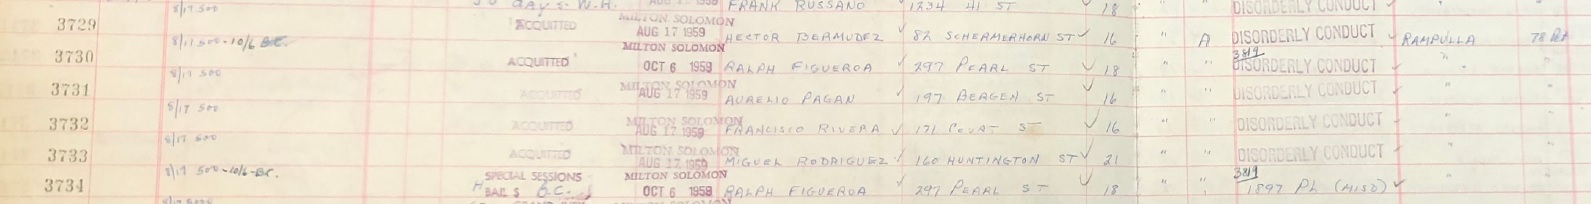 30 DAYS W.H. FRANK RUSSANO 1234 41 ST 18 DISORDERLY CONDUCT
3729 8/17 500 ACQUITTED MILTON SOLOMON AUG 17 1959 HECTOR BERMUDEZ ✓ 82 SCHERMERHORN ST ✓ 16 " A DISORDERLY CONDUCT ✓ RAMPULLA 78 Pct
3730 8/17 500-10/6 B.C. ACQUITTED MILTON SOLOMON OCT 6 1959 RALPH FIGUEROA ✓ 297 PEARL ST ✓ 18 " " 3819 DISORDERLY CONDUCT ✓ " "
3731 8/17 500 ACQUITTED MILTON SOLOMON AUG 17 1959 AURELIO PAGAN ✓ 197 BERGEN ST 16 " " DISORDERLY CONDUCT " "
3732 8/17 500 ACQUITTED MILTON SOLOMON AUG 17 1959 FRANCISCO RIVERA ✓ 171 COURT ST ✓ 16 " " DISORDERLY CONDUCT ✓ " "
3733 8/17 500 ACQUITTED MILTON SOLOMON AUG 17 1959 MIGUEL RODRIGUEZ ✓ 160 HUNTINGTON ST ✓ 21 " " DISORDERLY CONDUCT ✓ " "
3734 8/17 500-10/6-B.C. SPECIAL SESSIONS BAIL $ B.C. MILTON SOLOMON OCT 6 1959 RALPH FIGUEROA ✓ 297 PEARL ST ✓ 18 " " 3819 1897 PL (MISD) ✓ " "